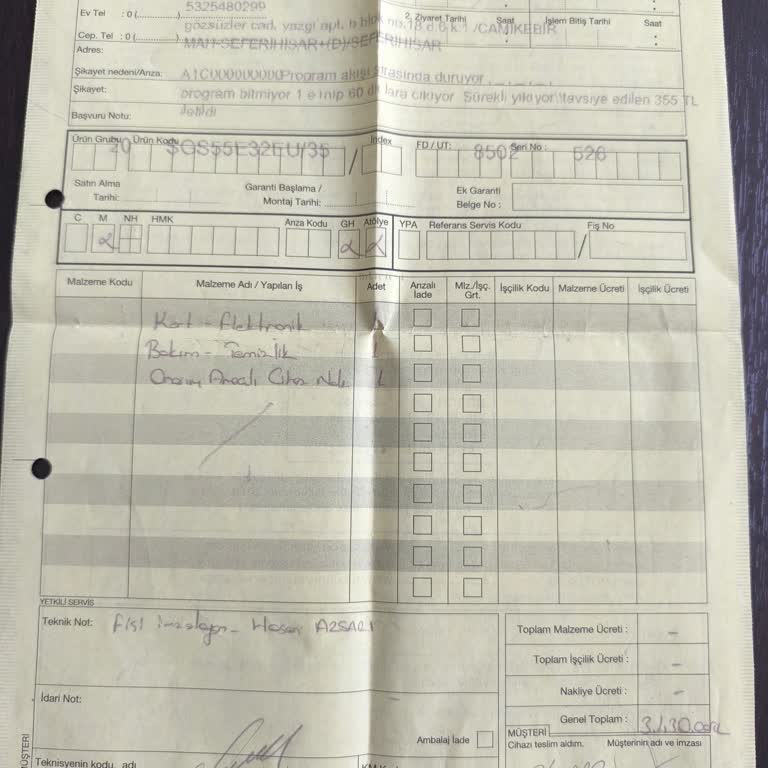 Ev Tel : 0 (..............) 5325480299
2. Ziyaret Tarihi Saat İşlem Bitiş Tarihi Saat
Cep. Tel : 0 (..............) gözsüzler cad. yazgı apt. b blok no.18 d.6 k.1 /CAMİKEBİR
Adres: MAH-SEFERİHİSAR+(D)/SEFERİHİSAR
Şikayet nedeni/Arıza: A1C000000000Program akışı sırasında duruyor
Şikayet: program bitmiyor 1 e inip 60 dk lara çıkıyor Sürekli yıkıyor\\tavsiye edilen 355 TL
Başvuru Notu: iletildi
Ürün Grubu Ürün Kodu Index FD / UT: Seri No :
20 SGS55E32EU/35 / 8502 526
Satın Alma Tarihi:
Garanti Başlama / Montaj Tarihi:
Ek Garanti Belge No :
C M NH HMK Arıza Kodu GH Atölye YPA Referans Servis Kodu Fiş No
Malzeme Kodu Malzeme Adı / Yapılan İş Adet Arızalı İade Mlz./İşç. Grt. İşçilik Kodu Malzeme Ücreti İşçilik Ücreti
Kart - Elektronik 1
Bakım - Temizlik 1
Onarım Arızalı Cihaz Nakl. 1
YETKİLİ SERVİS
Teknik Not: Fişi imzalayan - Hasan
Toplam Malzeme Ücreti : -
Toplam İşçilik Ücreti : -
Nakliye Ücreti : -
İdari Not:
Genel Toplam :
Ambalaj İade
MÜŞTERİ
Cihazı teslim aldım. Müşterinin adı ve imzası
Teknisyenin kodu, adı
MÜŞTERİ